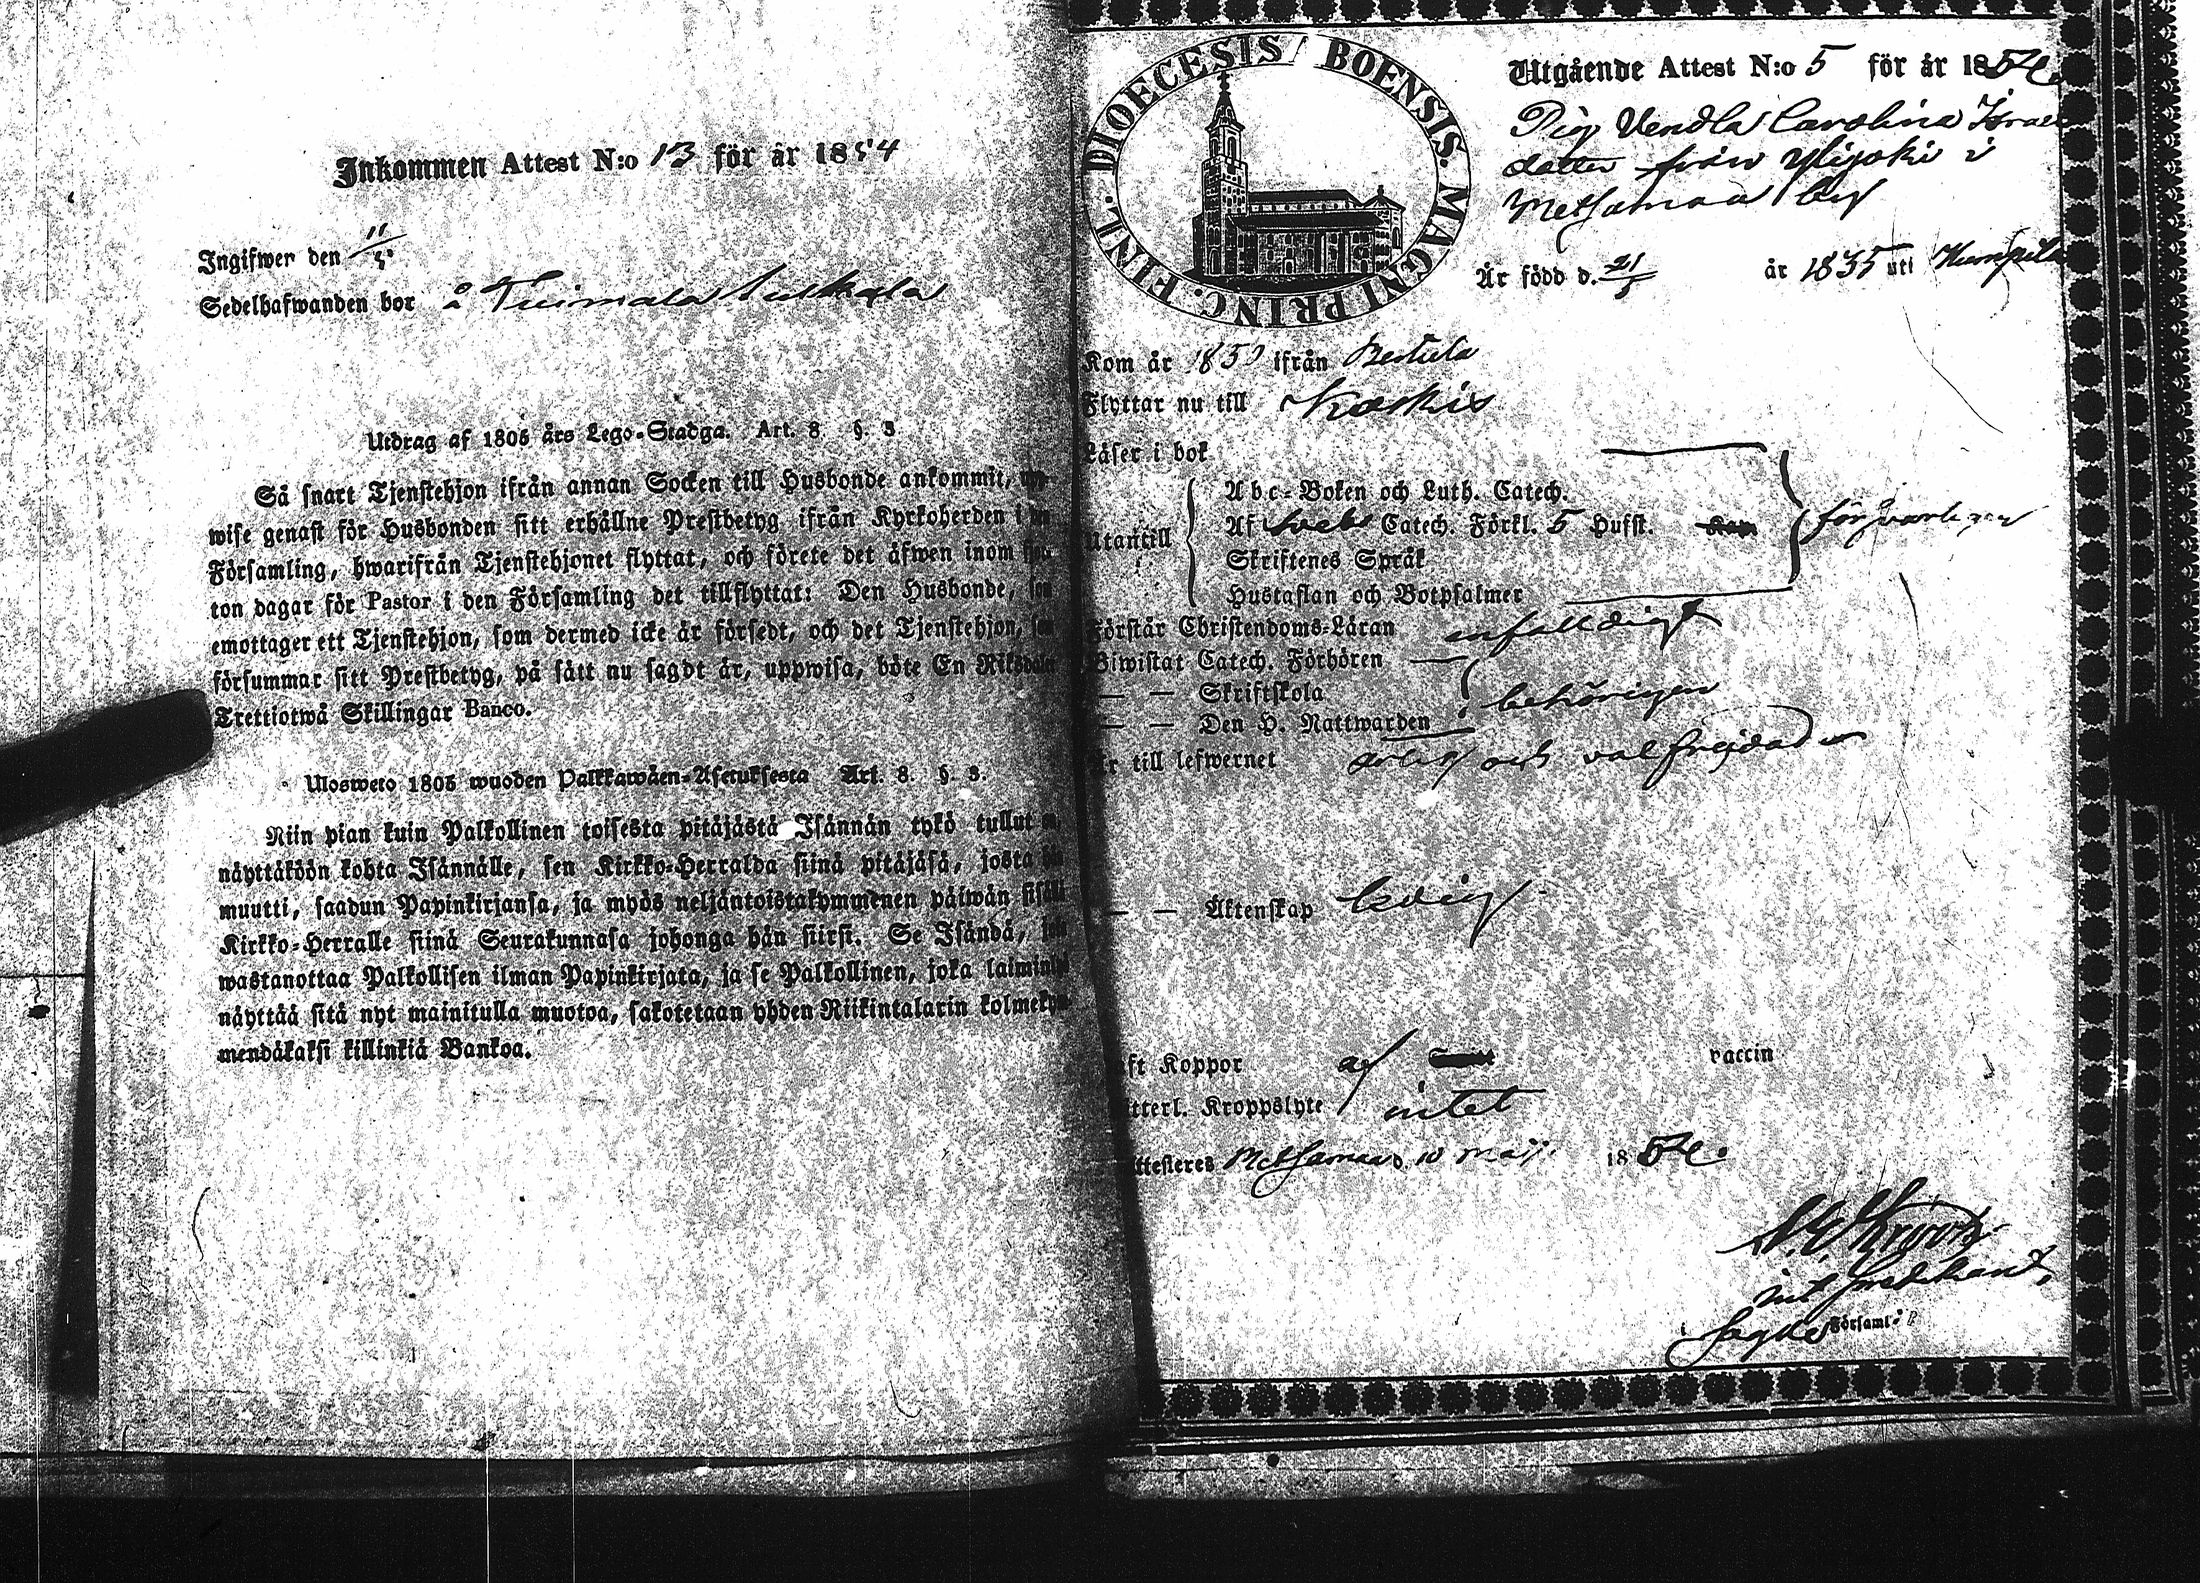 Inkommen Attest N:o 13 för år 1854
Ingifwen den 11/5.
Sedelhafwanden bor å Tuimala
Utdrag af 1805 års Lego-Stadga. Art. 8. §. 3
Så snart Tjenstehjon ifrån annan Socken till Husbonde ankommit,
wise genast för Husbonden sitt erhållne Prestbetyg ifrån Kyrkoherden i
Församling, hwarifrån Tjenstehjonet flyttat, och förete det äfwen inom
ton dagar för Pastor i den Församling det tillflyttat: Den Husbonde, som
emottager ett Tjenstehjon, som dermed icke är försedt, och det Tjenstehjon, som
försummar sitt Prestbetyg, på sätt nu sagdt är, uppwisa, böte En Riksdaler
Trettiotwå Skillingar Banco.
Ulosweto 1805 wuoden Palkkawäen-Asetuksesta Art. 8. §. 3.
Niin pian kuin Palkollinen toisesta pitäjästä Isännän tykö tullut on,
näyttäköön kohta Isännälle, sen Kirkko-Herralda siinä pitäjäsä, josta hän
muutti, saadun Papinkirjansa, ja myös neljäntoistakymmenen päiwän sisällä
Kirkko-Herralle siinä Seurakunnasa johonga hän siirsi. Se Isändä, joka
wastanottaa Palkollisen ilman Papinkirjata, ja se Palkollinen, joka laiminlyö
näyttää sitä nyt mainitulla muotoa, sakotetaan yhden Riikintalarin kolmekym-
mendäkaksi killinkiä Bankoa.
FINL. DIOECESIS BOENSIS. MAGNI PRINC.
Utgående Attest N:o 5 för år 1854.
Pig. Vendla Carolina Israels
dotter från Ylijoki i
Metsämaa by
Är född d. 21/5 år 1835 uti Humpila
Kom år 1850 ifrån
Flyttar nu till Koskis
Läser i bok
Abc-Boken och Luth. Catech.
Utantill Af Sveb. Catech. Förkl. 5 Hufst. försvarligen
Skriftenes Språk
Hustaflan och Botpsalmer
Förstår Christendoms-Läran enfaldigt
Biwistat Catech. Förhören
— — Skriftskola behörigen
— — Den H. Nattwarden
Är till lefwernet ärlig och välfrejdad
— — Äktenskap ledig
ft Koppor af vaccin
tterl. Kroppslyte intet
ttesteres Metsämaa d. 10 Maji 1854.
Krook
Predikant
i Församl.